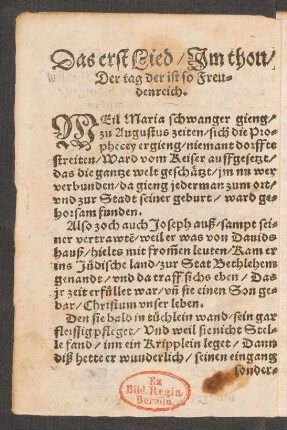 Das erst Lied / Im thon /
Der tag der ist so Freu-
denreich.
WEil Maria schwanger gieng /
zu Augustus zeiten / sich die Pro-
phecey ergieng / niemant dorffte
streiten / Ward vom Keiser auffgesetzt /
das die gantze welt geschätzt / jm nu wer
verbunden / da gieng jederman zum ort /
vnd zur Stadt seiner geburt / ward ge-
horsam funden.
Also zoch auch Joseph auß / sampt sei-
ner vertrawtē / weil er was von Dauids
hauß / hielts mit from̃en leuten / Kam er
ins Jüdische land / zur Stat Bethlehem
genandt / vnd da traff sichs eben / Das
jr zeit erfüllet war / vñ sie einen Son ge-
bar / Christum vnser leben.
Den sie bald in tüchlein wand / sein gar
fleissig pfleget / Vnd weil sie nicht Stel-
le fand / inn ein Kripplein leget / Dann
diß hette er wunderlich / seinen eingang
sonder-
Ex
Bibl. Regia
Berolin.